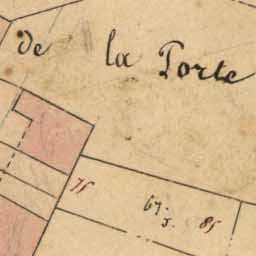 de la Porte
75
67. 85
5.